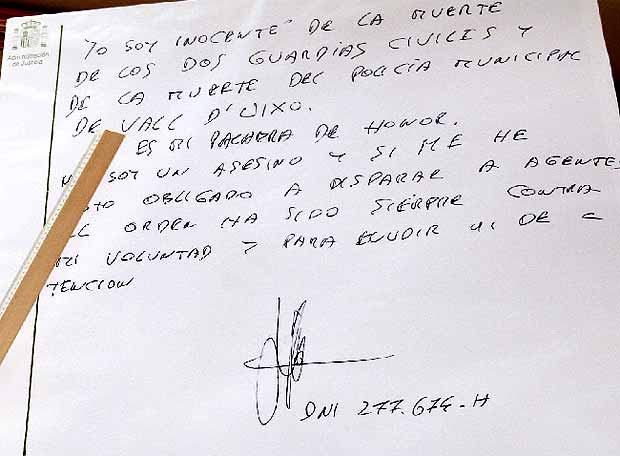 Administración
de Justicia
YO SOY INOCENTE DE LA MUERTE
DE LOS DOS GUARDIAS CIVILES Y
DE LA MUERTE DEL POLICÍA MUNICIPAL
DE VALL D'UIXO.
ES MI PALABRA DE HONOR.
SOY UN ASESINO Y SI ME HE
OBLIGADO A DISPARAR A AGENTES
ORDEN HA SIDO SIEMPRE CONTRA
MI VOLUNTAD Y PARA ELUDIR MI DE
TENCION
DNI 277.674-H